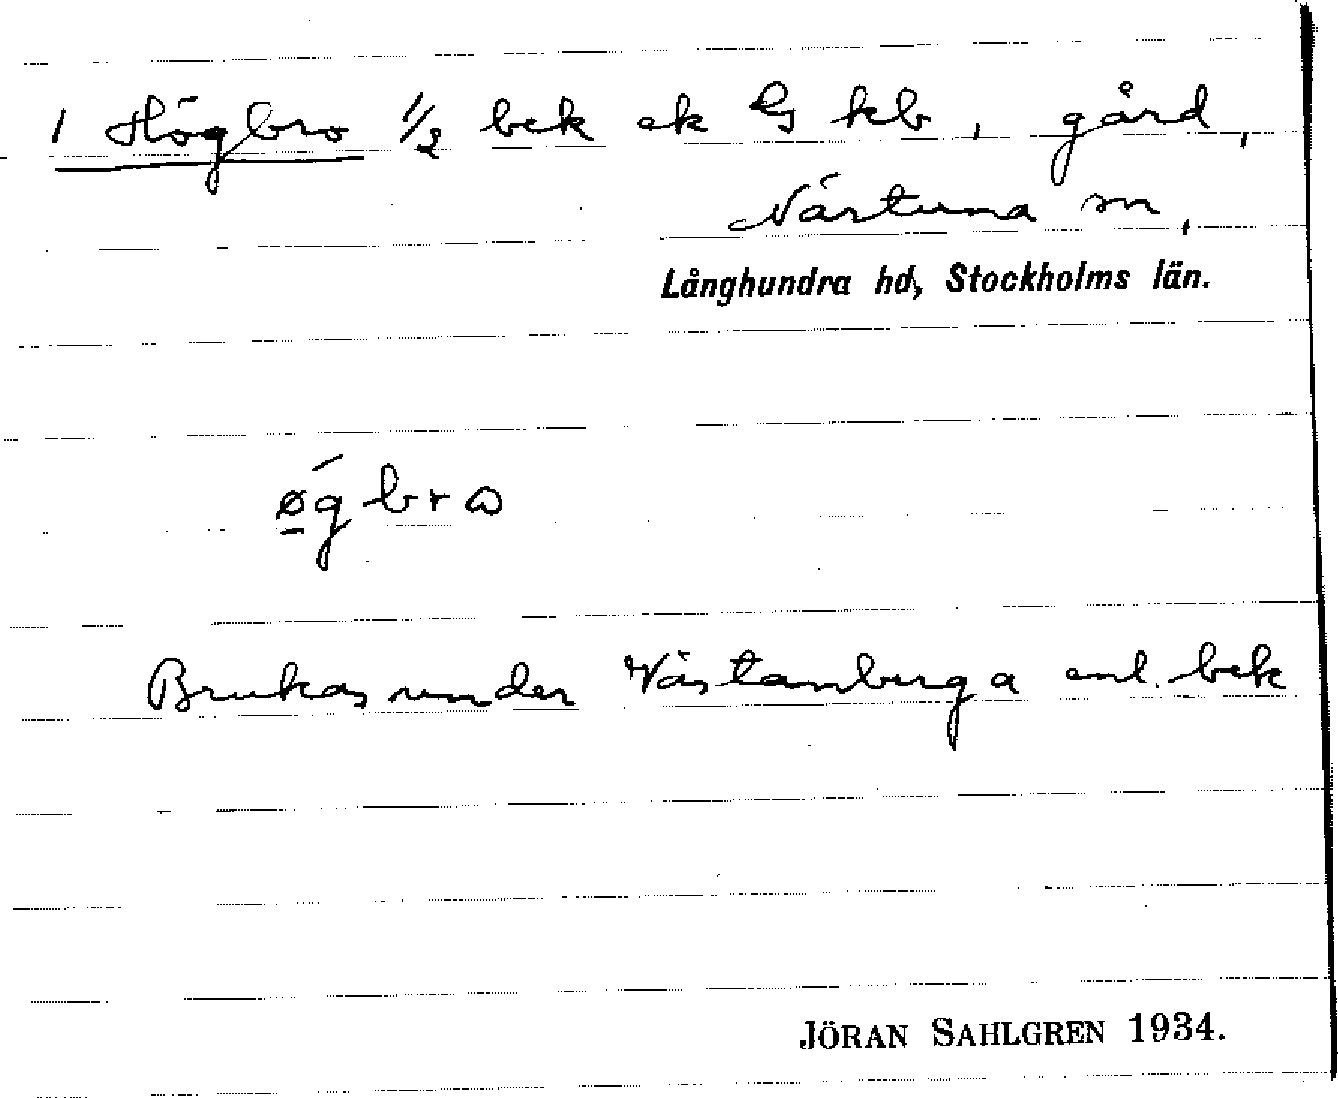 1 Högbro 1/2 bek ek G kb, gård,
Närtuna sn,
Långhundra hd, Stockholms län.
ǿ̲gbrω
Brukas under Västanberga enl. bek
JÖRAN SAHLGREN 1934.